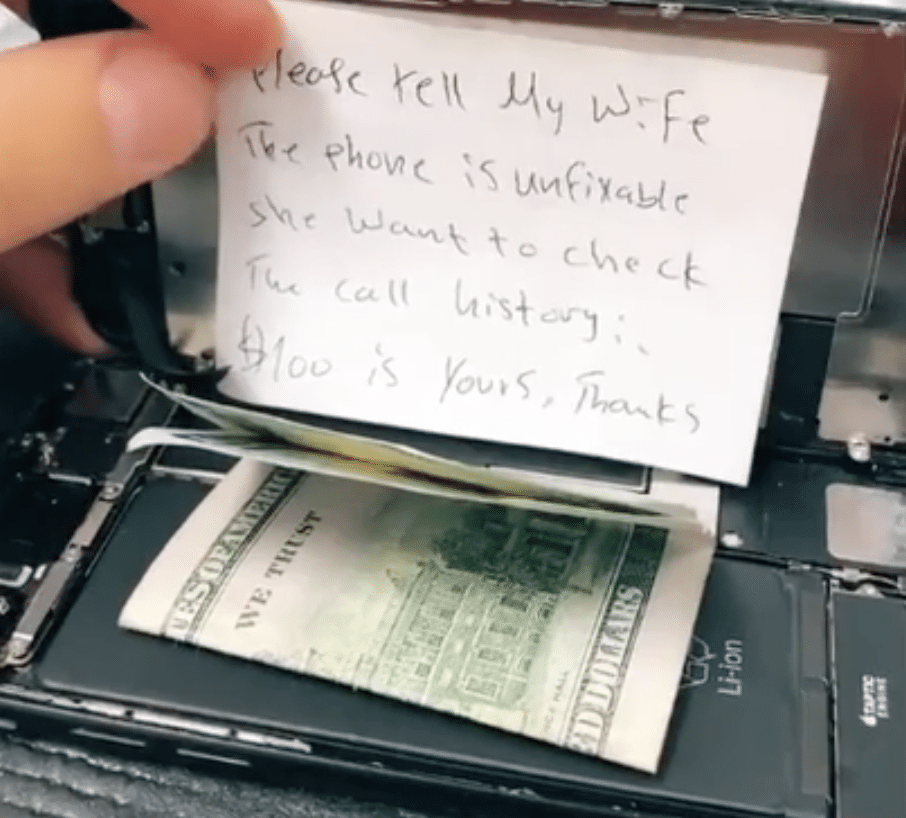 Please tell My Wife
The phone is unfixable
she want to check
The call history:.
$100 is Yours, Thanks
ES OF AMERIC
WE TRUST
D DOLLARS
Li-ion
TAPTIC
ENGINE